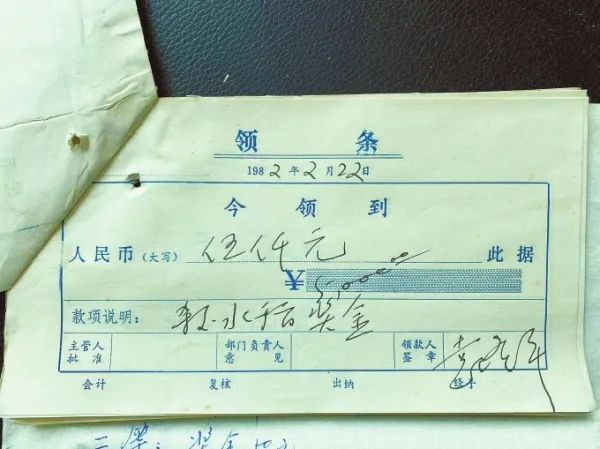 领条
1982年2月22日
今领到
人民币(大写) 伍仟元 此据
¥5,000.00
款项说明: 水稻奖金
主管人批准 部门负责人意见 领款人签章
会计 复核 出纳 经手
二等: 奖金